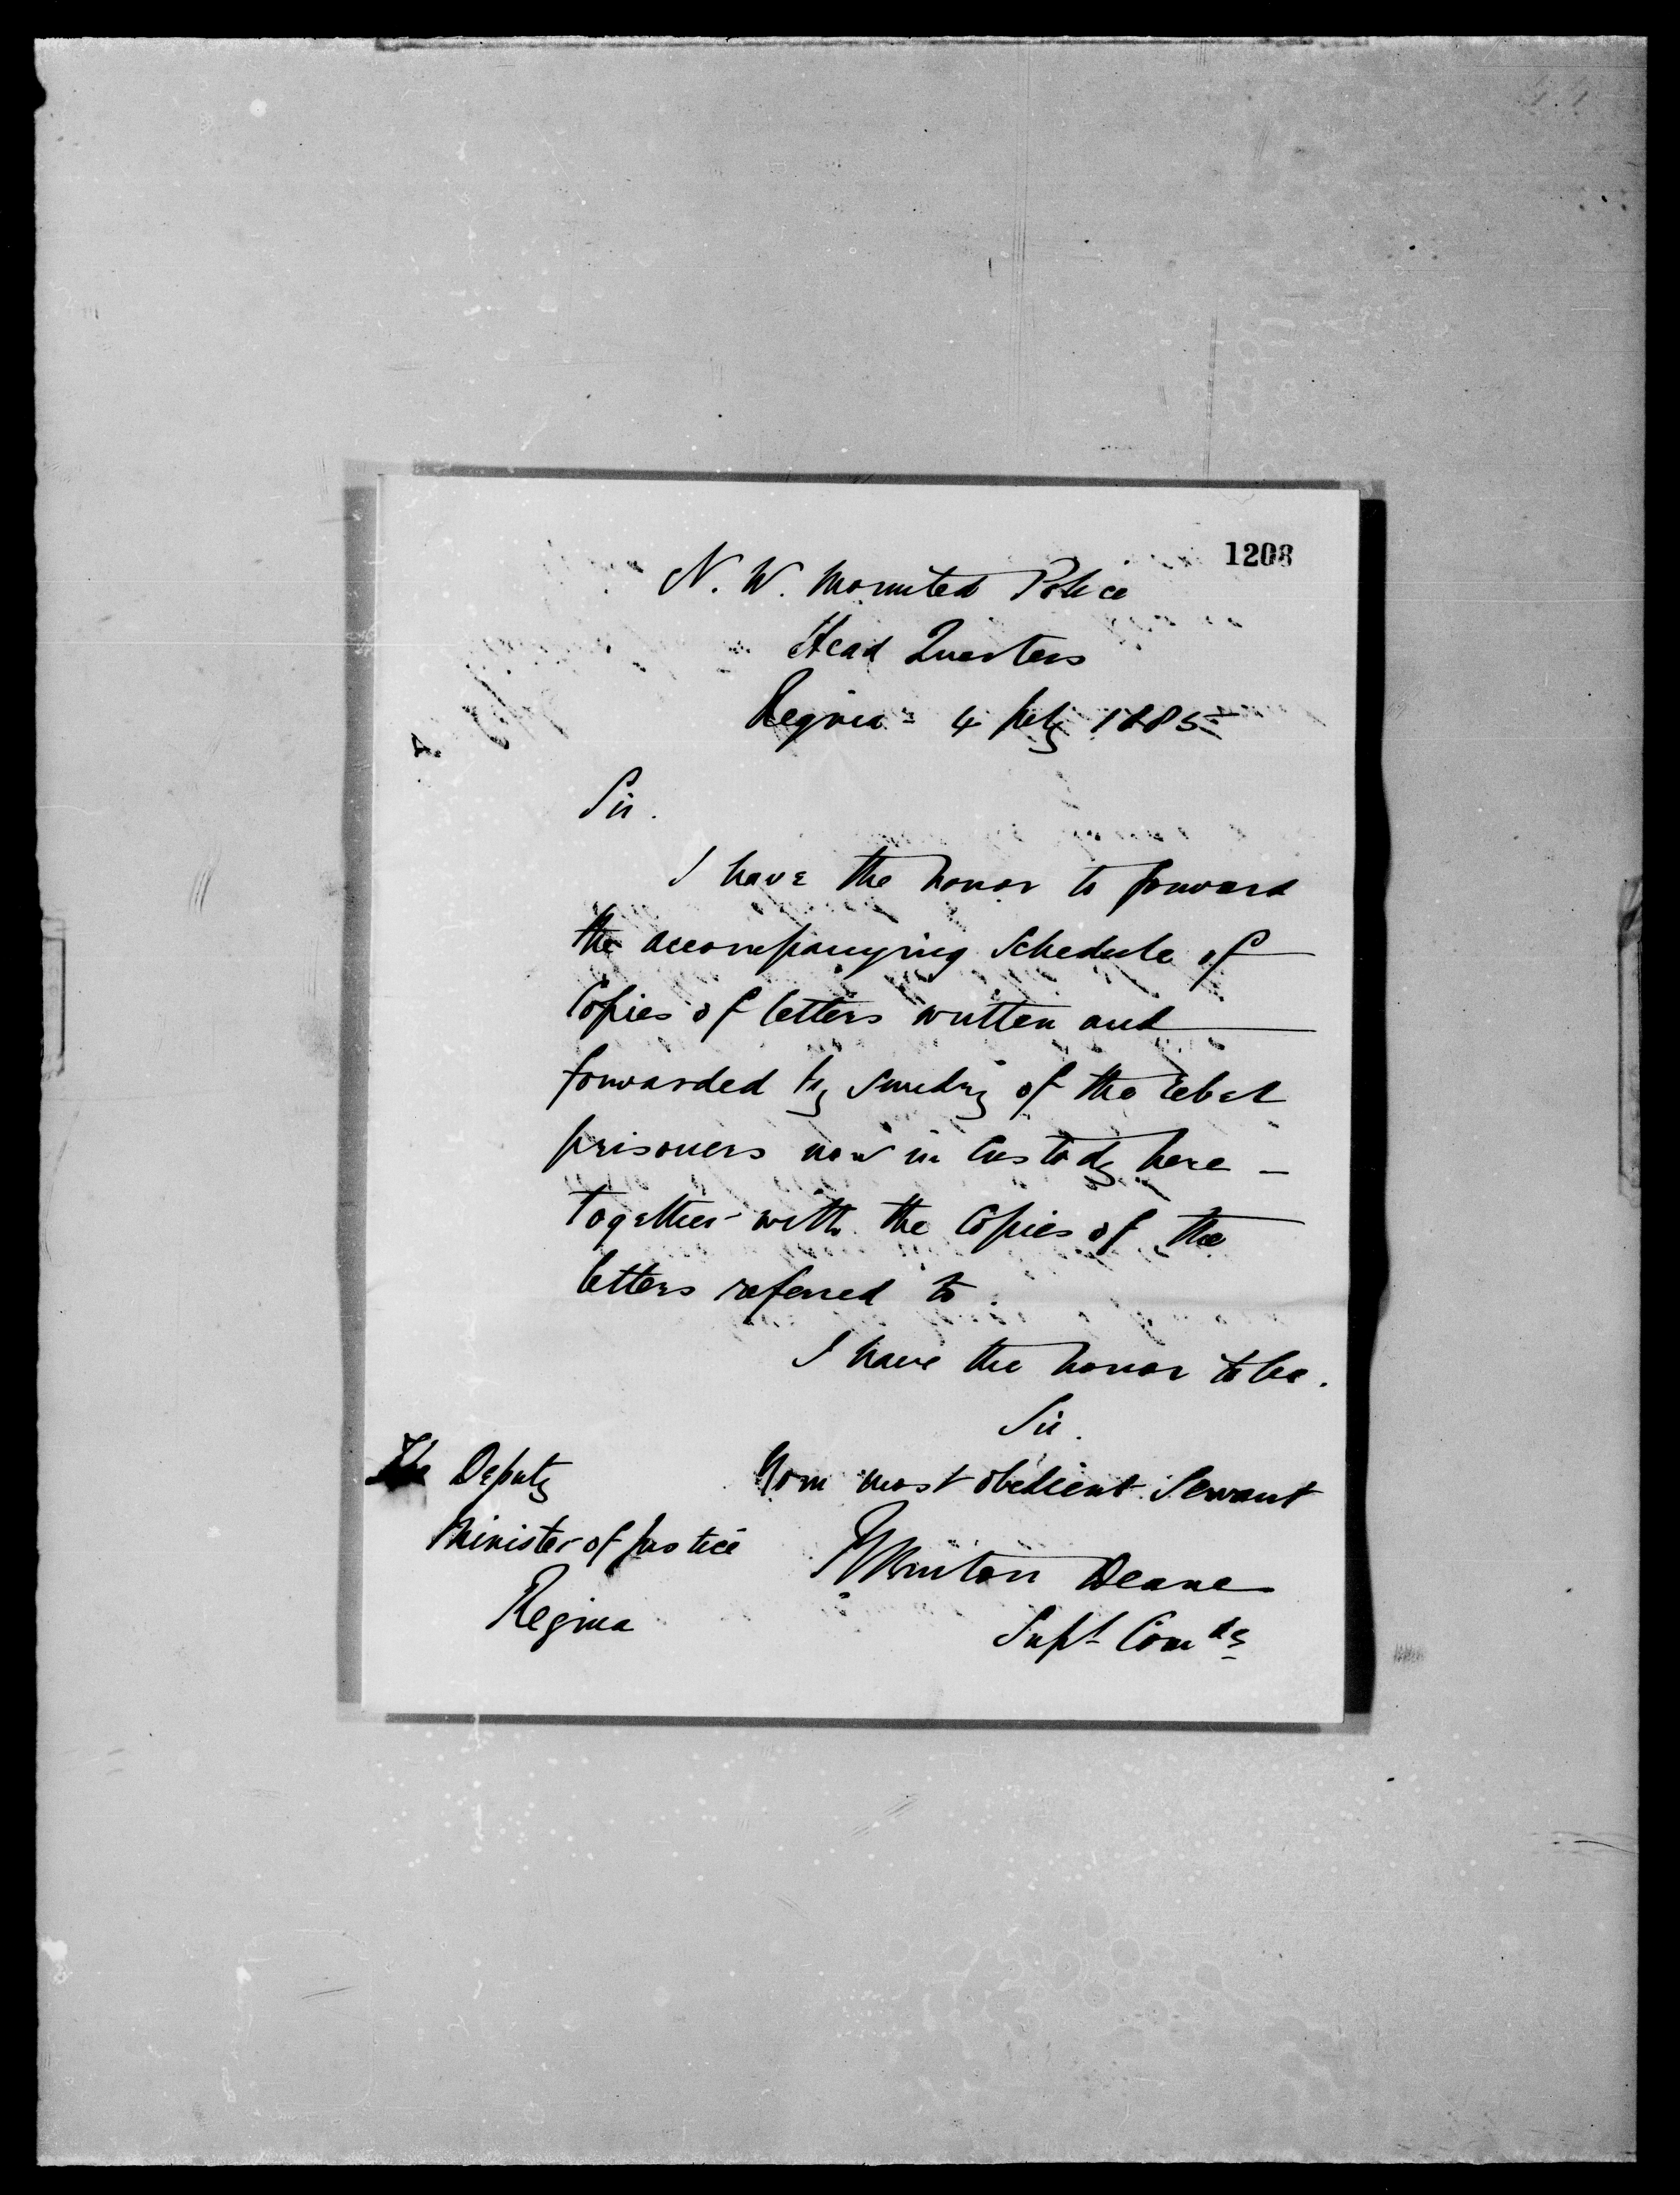 1208
N. W. Mounted Police
Head Quarters
Regina - 4 July 1885
Sir.
I have the honor to forward
the accompanying Schedule of
Copies of letters written and
forwarded by sundry of the rebel
prisoners now in Custody here -
together with the Copies of the
letters referred to.
I have the honor to be.
Sir.
Your most obedient Servant
Burton Deane
Supt Comdg
The Deputy
Minister of Justice
Regina